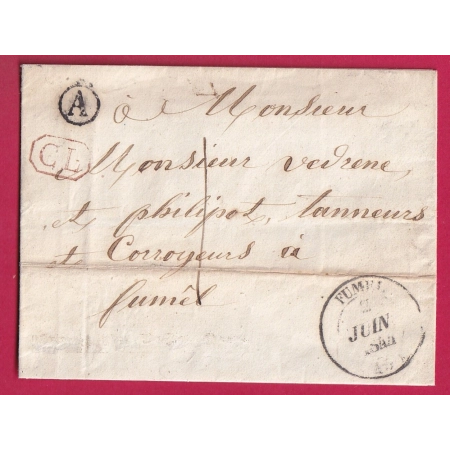 A
à Monsieur
CL
Monsieur vedrene
et philipot, tanneurs
et Corroyeurs à
fumêl
1
FUMEL
JUIN